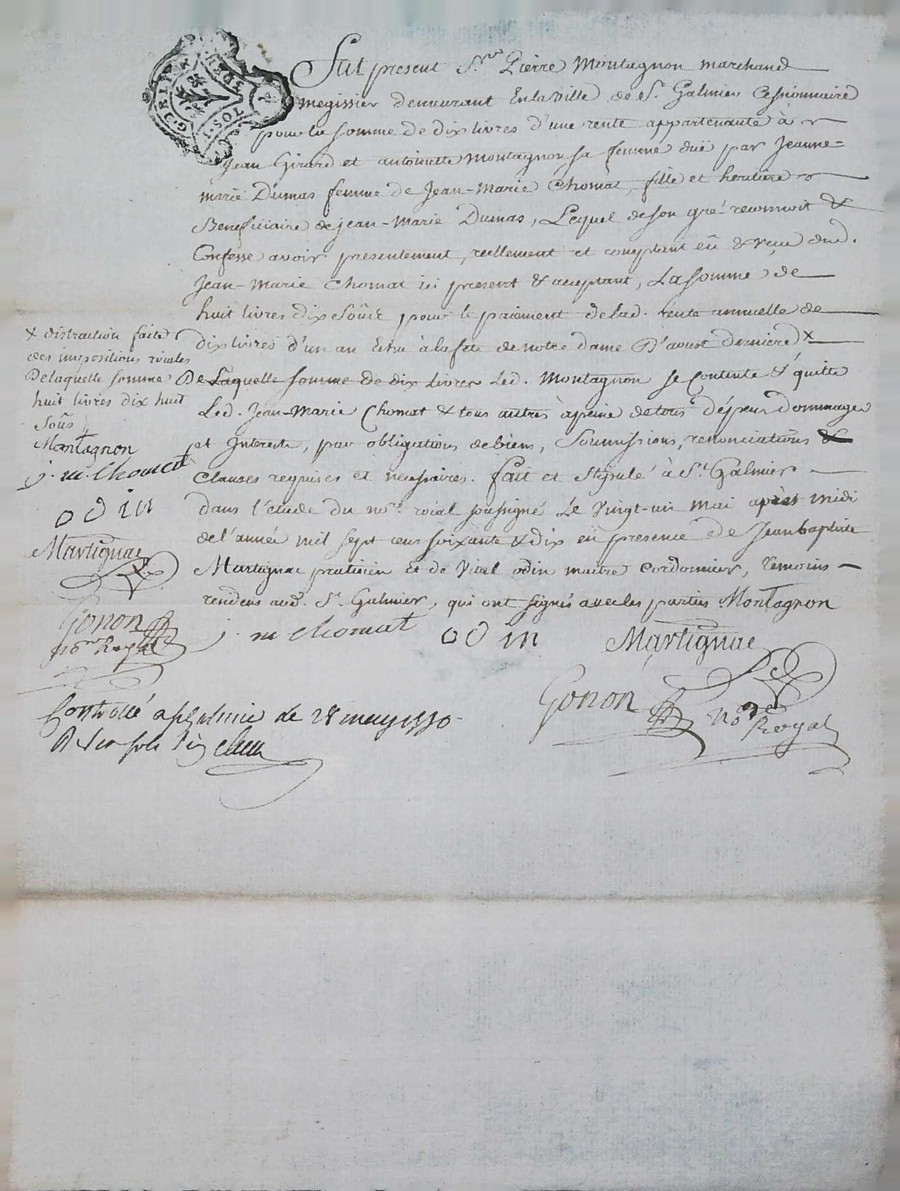 Fut present Sr. Pierre Montagnon marchand
megissier demeurant En la ville de St. Galmier Cessionnaire
pour la somme de dix livres d'une rente appartenante à
Jean Girard et antoinette Montagnon sa femme duë par Jeanne-
marie Dumas femme de Jean-Marie Chomat, fille et heritiere
Beneficiaire de jean-Marie Dumas, Lequel de son gré reconnoit &
Confesse avoir presentement, reellement et comptant eû & reçu dud.
Jean-Marie Chomat ici present & acceptant, La somme de
huit livres dix pour le paiement de lad. rente annuelle de
dix livres d'un an Echu à la fete de notre dame D'aoust derniere x
De Laquelle somme de dix Livres Led. Montagnon se contente & quitte
Led. Jean-Marie Chomat & tous autres à peine de tous dépens dommages
et Interets, par obligations de biens, Soumissions, renonciations &
Clauses requises et necessaires. fait et Stipulé à St. Galmier
dans l'étude du nore. roial soussigné Le vingt-un mai après midi
de l'année mil sept cens soixante & dix en presence de Jean baptiste
Martignac praticien et de Vital odin maitre Cordonnier, temoins
residens aud. St. Galmier, qui ont signés avec les parties Montagnon
j. m chomat odin Martignac
Gonon
Nore
Royal
x distraction faite
des impositions roiales
De laquelle somme
huit livres dix huit
sous
Montagnon
j. m chomat
odin
Martignac
Gonon
nore Royal
Controllé a St galmier le 28 may 1770